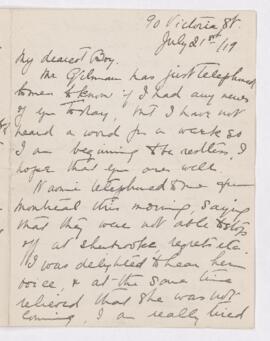 90 Victoria St.
July 21st/19
My dearest Boy.
Mr Gilman has just telephoned
to me to know if I had any news
of you today, but I have not
heard a word for a week so
I am beginning to be restless, I
hope that you are well.
Naomi telephoned to me from
Montreal this morning, saying
that they were not able to stop
off at Sherbrooke, regrets etc.
I was delighted to hear her
voice, & at the same time
relieved that she was not
coming, I am really tired